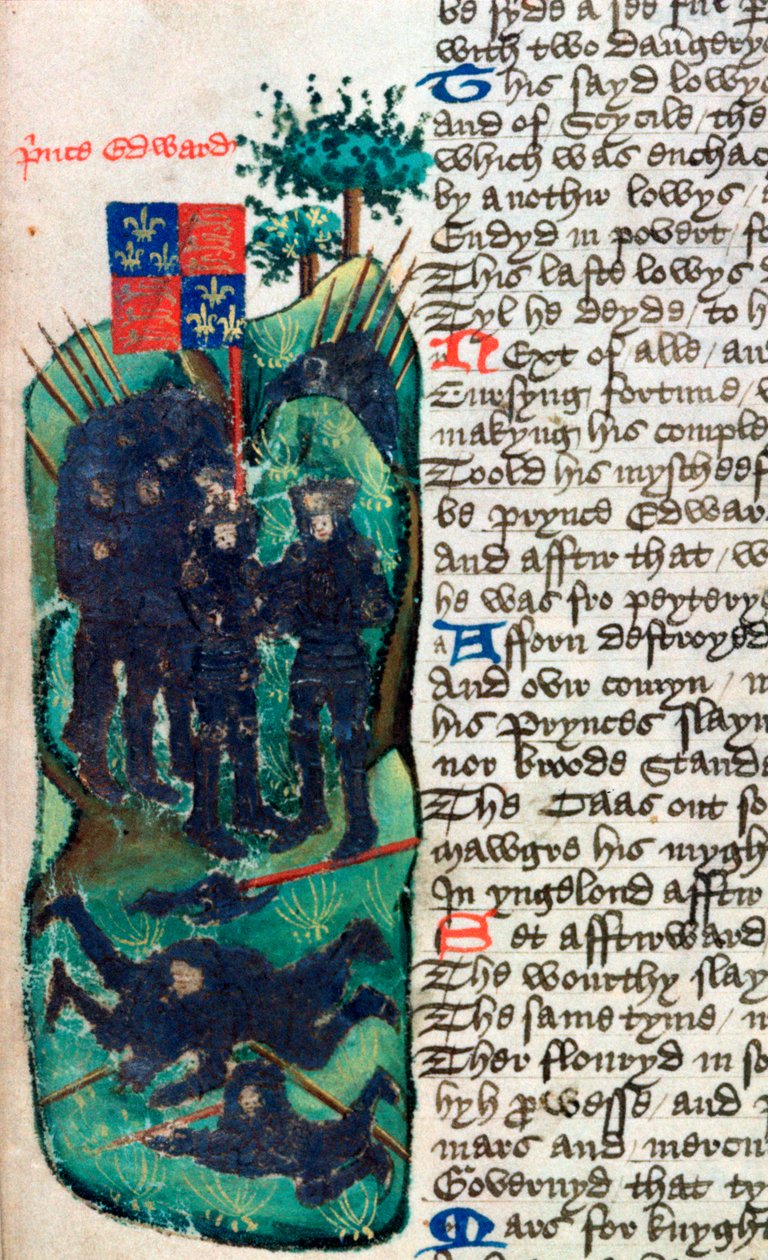 prince Edward
be syde a see ful
with two daungery
This sayd lowys
and of Scycile / the
which was enchac
by anothir lowys /
Endyd in povert / fo
This laste lowys
Tyl he deyde / to h
Next of alle / an
Cursyng fortune /
makyng his comple
Toold his myscheef
be prynce Edwar
and afftir that / w
he was fro peytery
Afforn destroyed
And ovir comyn / in
his Prynces slayn
nor broode Standa
The Daas out so
mawgre his mygh
In yngelond afftir
Bet afftirward
The wourthy slay
The same tyme / in
Ther flouryd in so
hyh prowesse / and
mars and / mercur
Governyd that ty
Mars for knyght